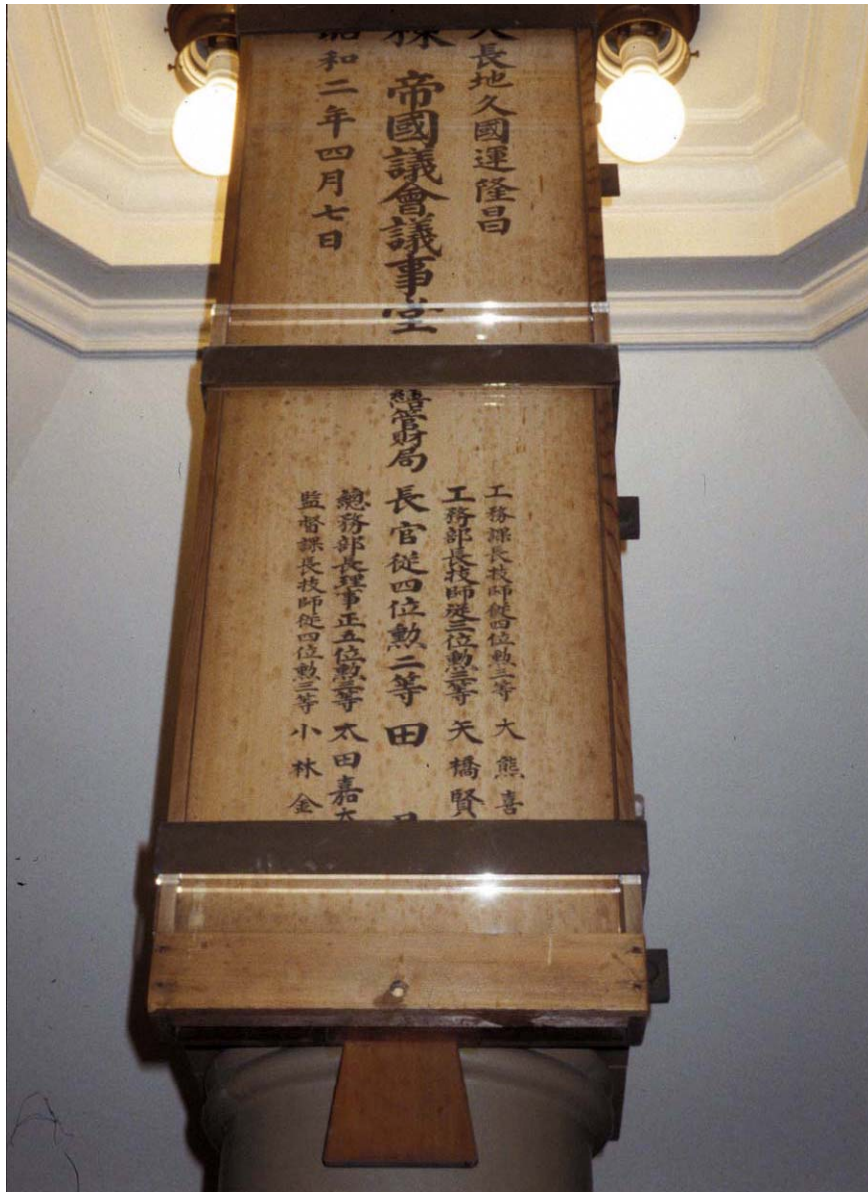 長地久國運隆昌
棟 帝國議會議事堂
昭和二年四月七日
繕管財局
工務課長技師從四位勲三等 大熊喜
工務部長技師從三位勲三等 矢橋賢
長官從四位勲二等 田
總務部長理事正五位勲三等 太田嘉太
監督課長技師從四位勲三等 小林金